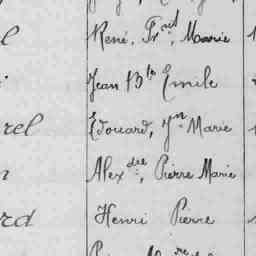 René, Fr^çis, Marie
Jean B^te Emile
rel Edouard, J^n Marie
Alex^dre, Pierre Marie
rd Henri Pierre